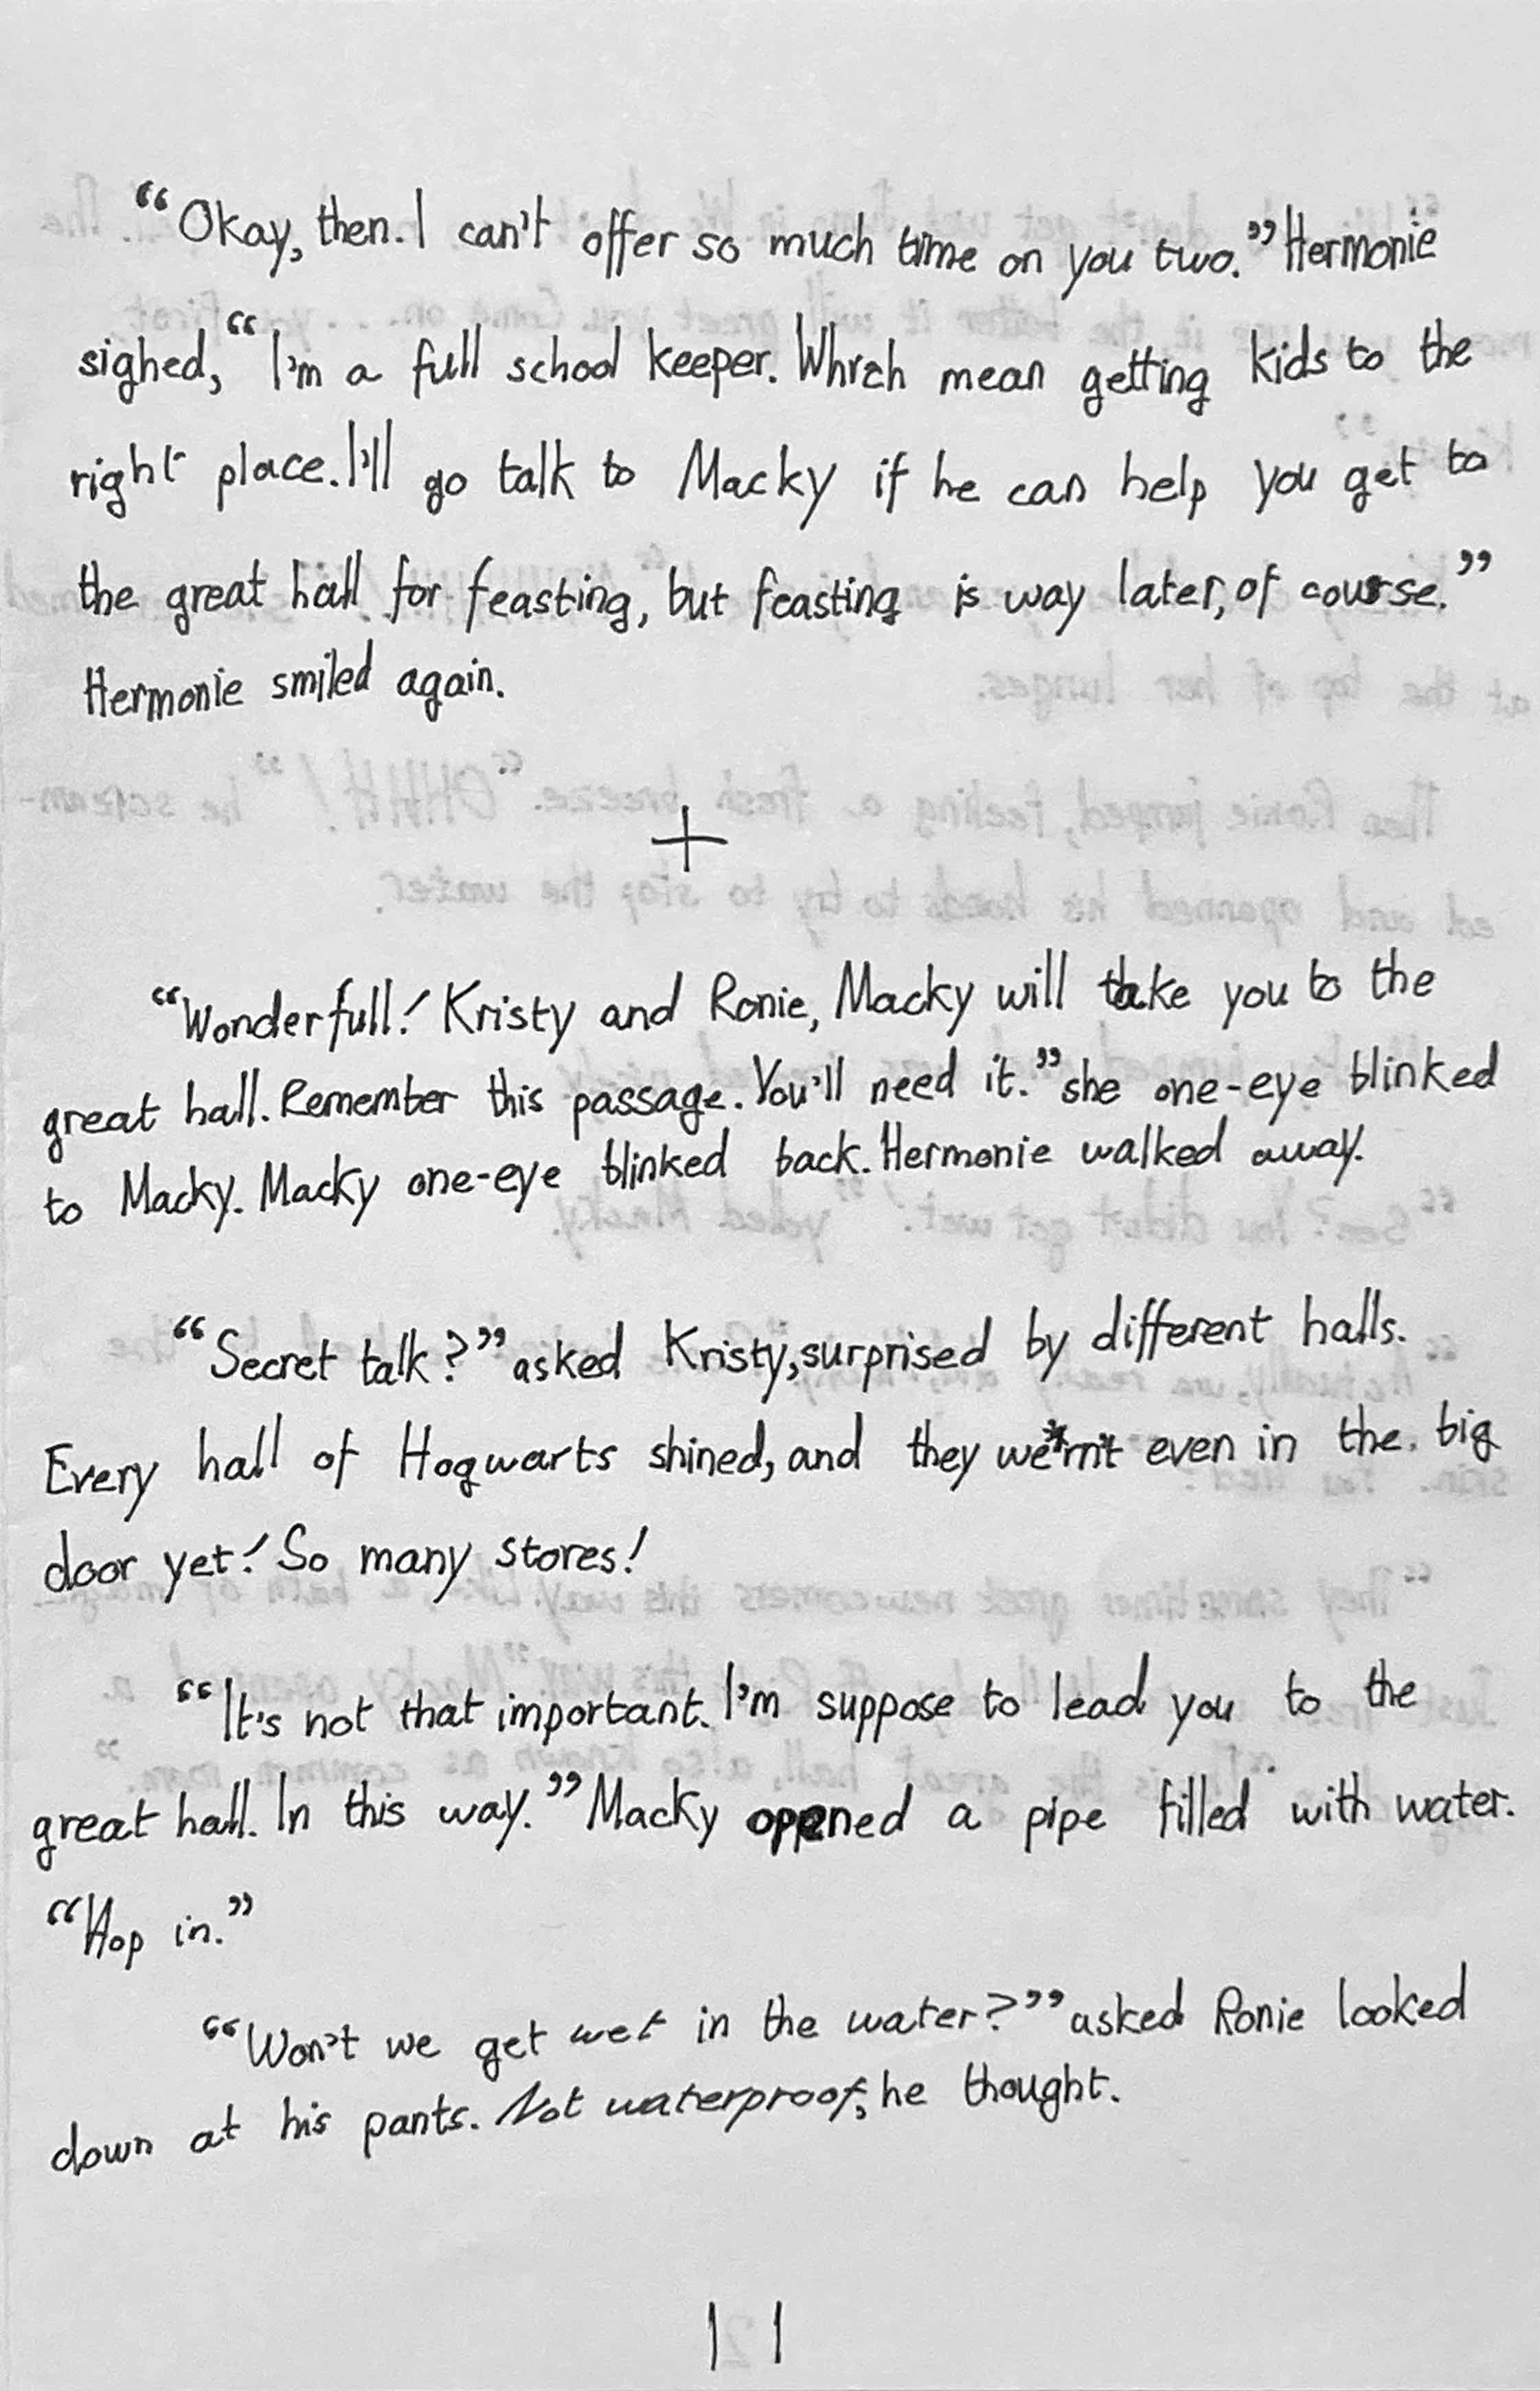 “Okay, then. I can't offer so much time on you two.” Hermonie
sighed, “I'm a full school keeper. Which mean getting kids to the
right place. I'll go talk to Macky if he can help you get to
the great hall for feasting, but feasting is way later, of course.”
Hermonie smiled again.
+
“Wonderfull! Kristy and Ronie, Macky will take you to the
great hall. Remember this passage. You'll need it.” she one-eye blinked
to Macky. Macky one-eye blinked back. Hermonie walked away.
“Secret talk?” asked Kristy, surprised by different halls.
Every hall of Hogwarts shined, and they wern't even in the big
door yet! So many stores!
“It's not that important. I'm suppose to lead you to the
great hall. In this way.” Macky oppened a pipe filled with water.
“Hop in.”
“Won't we get wet in the water?” asked Ronie looked
down at his pants. Not waterproof, he thought.
11